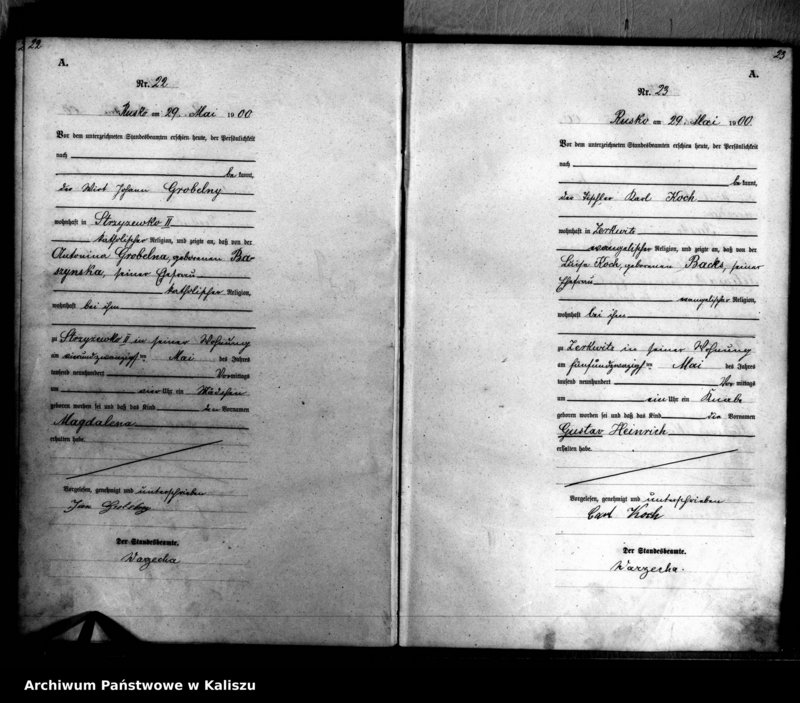 22
A.
Nr. 22
Rusko am 29. Mai 1900
Vor dem unterzeichneten Standesbeamten erschien heute, der Persönlichkeit
nach
be kannt,
der Wirt Johann Grobelny
wohnhaft in Strzyzewko II
katholischer Religion, und zeigte an, daß von der
Antonina Grobelna, geborenen Ba-
szynska, seiner Ehefrau
katholischer Religion,
wohnhaft bei ihm
zu Strzyzewko II in seiner Wohnung
am vierundzwanzigsten Mai des Jahres
tausend neunhundert Vormittags
um vier Uhr ein Mädchen
geboren worden sei und daß das Kind den Vornamen
Magdalena
erhalten habe.
Vorgelesen, genehmigt und unterschrieben
Jan
Der Standesbeamte.
Warzecha
23
A.
Nr. 23
Rusko am 29. Mai 1900.
Vor dem unterzeichneten Standesbeamten erschien heute, der Persönlichkeit
nach
be kannt,
der Karl Koch
wohnhaft in Zerkwitz
evangelischer Religion, und zeigte an, daß von der
Luise Koch, geborenen Backs, seiner
Ehefrau
evangelischer Religion,
wohnhaft bei ihm
zu Zerkwitz in seiner Wohnung
am fünfundzwanzigsten Mai des Jahres
tausend neunhundert Vor mittags
um ein Uhr ein Knabe
geboren worden sei und daß das Kind die Vornamen
Gustav Heinrich
erhalten habe.
Vorgelesen, genehmigt und unterschrieben
Carl Koch
Der Standesbeamte.
Warzecha.
Archiwum Państwowe w Kaliszu